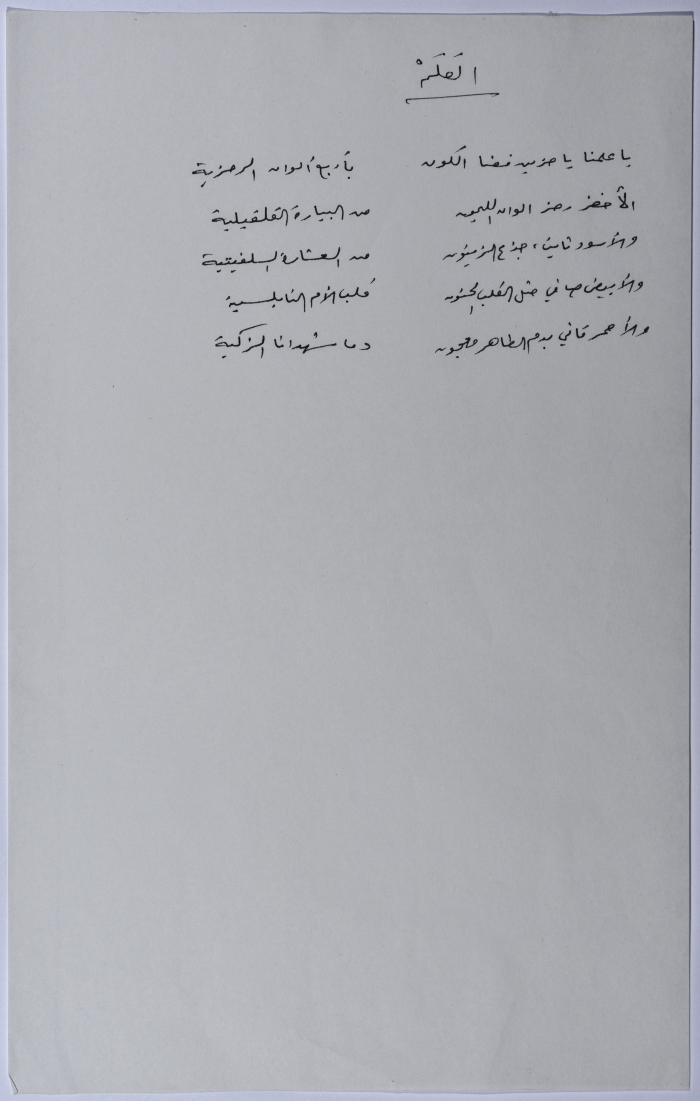 العَلَمْ
يا علمنا يا مزين فضا الكون بأربع ألوان الرمزية
الأخضر رمز الوان الليمون من البيارة القلقيلية
والأسود ثابت، جذع الزيتون من السلفيتية
والأبيض صافي مثل القلب الحنون قلب الأم النابلسية
والأحمر قاني بدم الطاهر معجون دما شهدانا الزكية